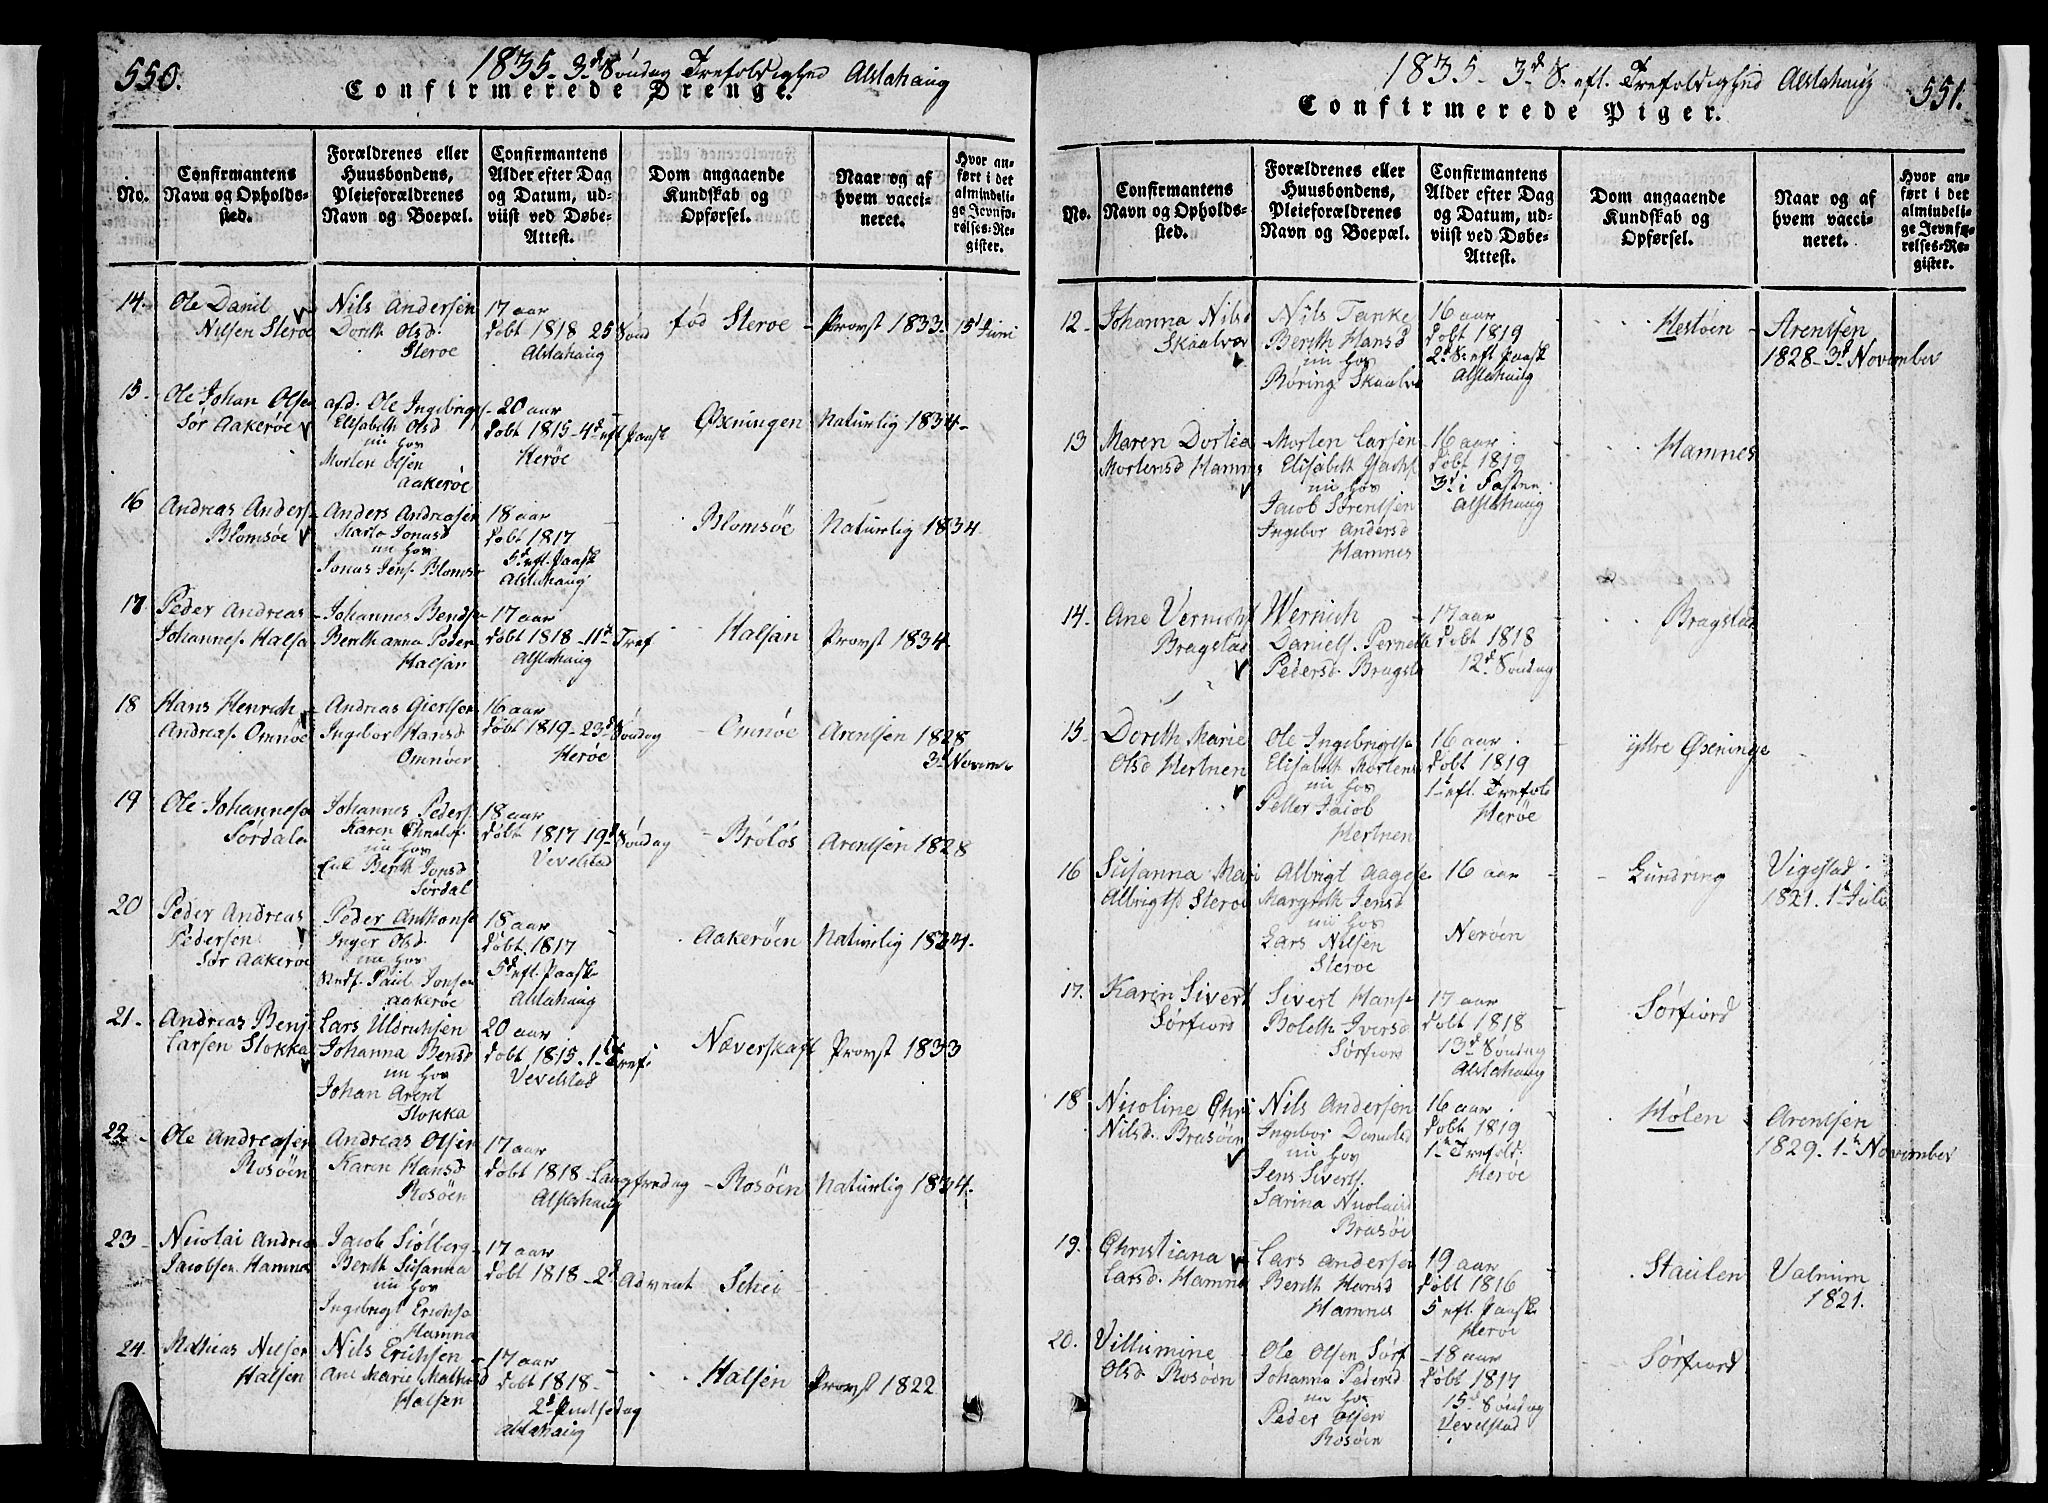 550.
1835. 3d Søndag Trefoldighed Alstahaug
Confirmerede Drenge.
No.
Confirmantens
Navn og Opholds-
sted.
Forældrenes eller
Huusbondens,
Pleieforældrenes
Navn og Boepæl.
Confirmantens
Alder efter Dag
og Datum, ud-
viist ved Døbe-
Attest.
Dom angaaende
Kundskab og
Opførsel.
Naar og af
hvem vacci-
neret.
Hvor an-
ført i det
almindeli-
ge Jevnfø-
relses-Re-
gister.
14.
Ole Daniel
Nilsen Steroe
Nils Andersen
Dorth Olsd.
Steroe
17 aar
døbt 1818 25 Sønd
Alstahaug
fød Steroe
Provst 1833. 15 Juni
15
Ole Johan Olsen
Sør Aakerøe
afd. Ole Ingebrigts
Elisabeth Olsd
nu hos
Morten Olsen
Aakerøe
20 aar
døbt 1815 4d eft Paask
Herøe
Øxningen
Naturlig 1834
16
Andreas Anders
Blomsøe
Anders Andreasen
Marta Jonasd
nu hos
Jonas Jens. Blomsø
18 aar
døbt 1817
5d eft. Paask
Alstahaug
Blomsøe
Naturlig 1834
17
Peder Andreas
Johannes. Halsa
Johannes Bends
Berith anna Peder
Halsan
17 aar
døbt 1818 - 11d Tref
Alstahaug
Halsan
Provst 1834.
18
Hans Henrich
Andreas. Omnøe
Andreas Giertsen
Ingebor Hansd
Omnøen
16 aar
døbt 1819 - 23d Søndag
Herøe
Omnøe
Arentsen 1828
3d Novem
19
Ole Johannesen
Sørdale
Johannes Peders
Karen Christof.
nu hos
Enk Berith Jonsd
Sørdal
18 aar
døbt 1817 19d Søndag
Vevelstad
Brøløs
Arentsen 1828
20
Peder Andreas
Pedersen
Sør Aakerøe
Peder Anthons
Inger Olsd
nu hos
Paul Jonsen
Aakerøe
18 aar
døbt 1817
5d eft. Paask
Alstahaug
Aakerøen
Naturlig 1834.
21
Andreas Benj
Larsen Stokka
Lars Uldrichsen
Johanna Bensd
nu hos
Johan Arent
Stokka
20 aar
døbt 1815. 1ste Tref
Vevelstad
Næverskaft
Provst 1833
22
Ole Andreasen
Rosøen
Andreas Olsen
Karen Hansd
Rosøen
17 aar
døbt 1818 - Langfredag
Alstahaug
Rosøen
Naturlig 1834.
23
Nicolai Andrea
Jacobsen Hamna
Jacob Siølberg
Berith Susanna
nu hos
Ingebrigt Erichse
Hamna
17 aar
døbt 1818 - 2d Advent
Schei
24.
Mathias Nilsen
Halsen
Nils Erichsen
Ane Marie Mathisd
Halsen
17 aar
døbt 1818 -
2d Pindsedag
Alstahaug
Halsen
Provst 1822
1835 - 3d S. eft. Trefoldighed Alstahaug
551.
Confirmerede Piger.
No.
Confirmantens
Navn og Opholds-
sted.
Forældrenes eller
Huusbondens,
Pleieforældrenes
Navn og Boepæl.
Confirmantens
Alder efter Dag
og Datum, ud-
viist ved Døbe-
Attest.
Dom angaaende
Kundskab og
Opførsel.
Naar og af
hvem vacci-
neret.
Hvor an-
ført i det
almindeli-
ge Jevnfø-
relses-Re-
gister.
12.
Johanna Nilsd
Skaalvær
Nils Tanke
Berith Hansd
nu hos
Børing Skaalvæ
16 aar
døbt 1819
2d S. eft Paask
Alstahaug
Hestøen
Arentsen
1828 - 3d November
13
Maren Dortea
Mortensd Hamnes
Morten Larsen
Elisabeth
nu hos
Jacob Sørentsen
Ingebor Andersd
Hamnes
16 aar
døbt 1819
3d i Fasten
Alstahaug
Hamnes
14.
Ane Vernichs
Bragstad
Wernich
Daniels. Pernella
Pedersd. Bragsta
17 aar
døbt 1818
12d Søndag
Bragstad
15
Dorith Marie
Olsd Hertnen
Ole Ingebrigtse
Elisabeth Mortens
nu hos
Petter Jacob
Hertnen
16 aar
døbt 1819
1ste eft. Trefold
Herøe
yttre Øxninge
16
Susanna Mari
Albrigts Steroe
Albrigt Aagese
Margreth Jensd
nu hos
Lars Nilsen
Steroe
16 aar
Nerøen
Gundring
Vigestad
1821. 1ste Juli
17.
Karin Sivert
Sørfiord
Sivert Hanse
Boleth Iversd
Sørfiord
17 aar
døbt 1818
13d Søndag
Alstahaug
Sørfiord
18
Nicoline Chri
Nilsd. Brasøen
Nils Andersen
Ingebor Danielsd
nu hos
Jens Siverts.
Sarina Nicolaisd
Brasøe
16 aar
døbt 1819
1ste Trefold.
Herøe
Holen
Arentsen
1829. 1ste November
19.
Christiana
Larsd. Hamnø
Lars Andersen
Berith Hansd
Hamnes
19 aar
døbt 1816
5 eft. Paask
Herøe
Staulen
Valnum
1821.
20.
Villumine
Olsd Rosøen
Ole Olsen Sørf
Johanna Pedersd
nu hos
Peder Olsen
Rosøen
18 aar
døbt 1817
15d Søndag
Vevelstad
Sørfiord